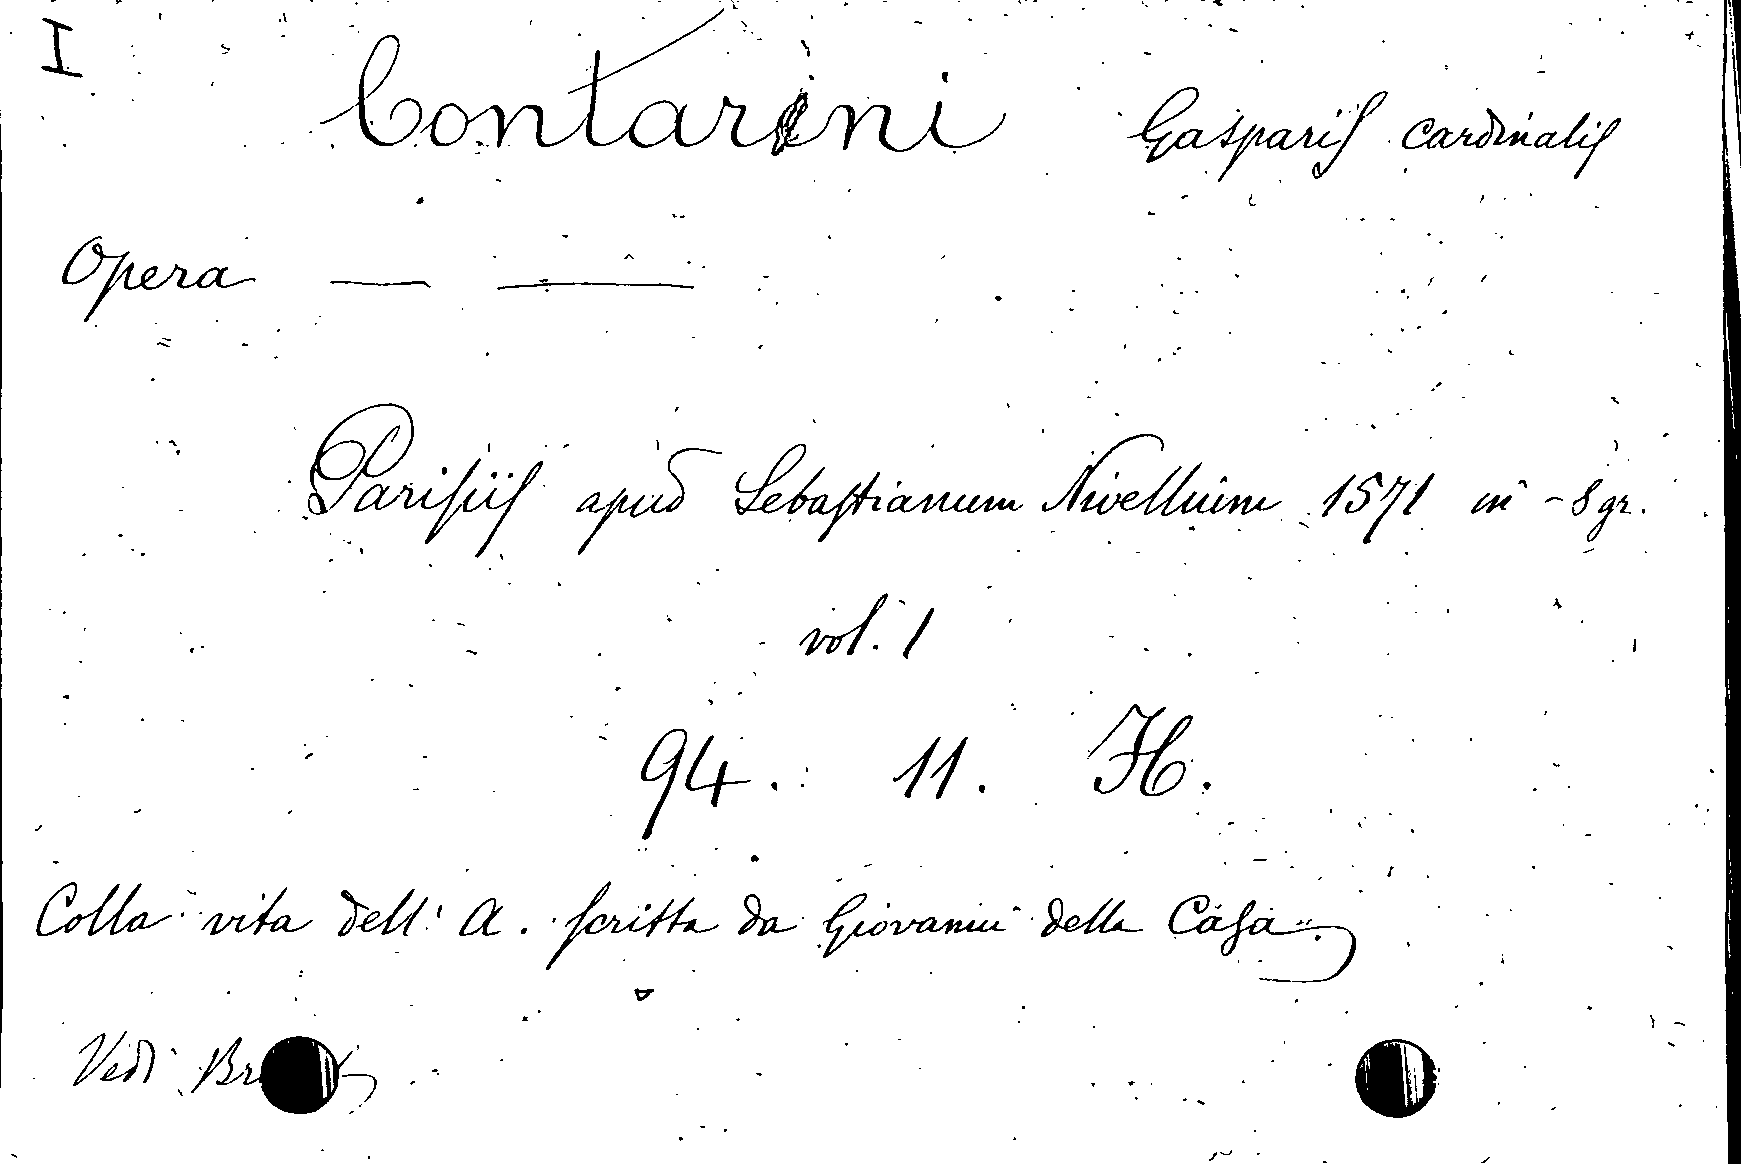 I
Contarini Gasparis cardinalis
Opera — —
Parisiis apud Sebastianum Nivellium 1571 in-8 gr.
vol. 1
94. 11. H.
Colla vita dell' A. scritta da Giovanni della Casa.
Vedi